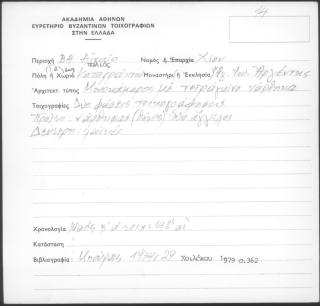 14
ΑΚΑΔΗΜΙΑ ΑΘΗΝΩΝ
ΕΥΡΕΤΗΡΙΟ ΒΥΖΑΝΤΙΝΩΝ ΤΟΙΧΟΓΡΑΦΙΩΝ
ΣΤΗΝ ΕΛΛΑΔΑ
Περιοχή ΒΑ Αιγαίο Νομός ή Επαρχία Χίου
Πόλη ή Χωριό Καταρράκτης Μοναστήρι ή Εκκλησία Αγ. Ιωάν. Αργέντης
Αρχιτεκτ. τύπος Μονόχωρος με τετράγωνο νάρθηκα
Τοιχογραφίες: Δύο φάσεις τοιχογράφησης
Πρώτη: νάρθηκας δύο άγγελοι
Δεύτερη:
Χρονολογία
Κατάσταση
Βιβλιογραφία: Μπούρας 1974, 29 Χοτλάκου 1979 σ.362